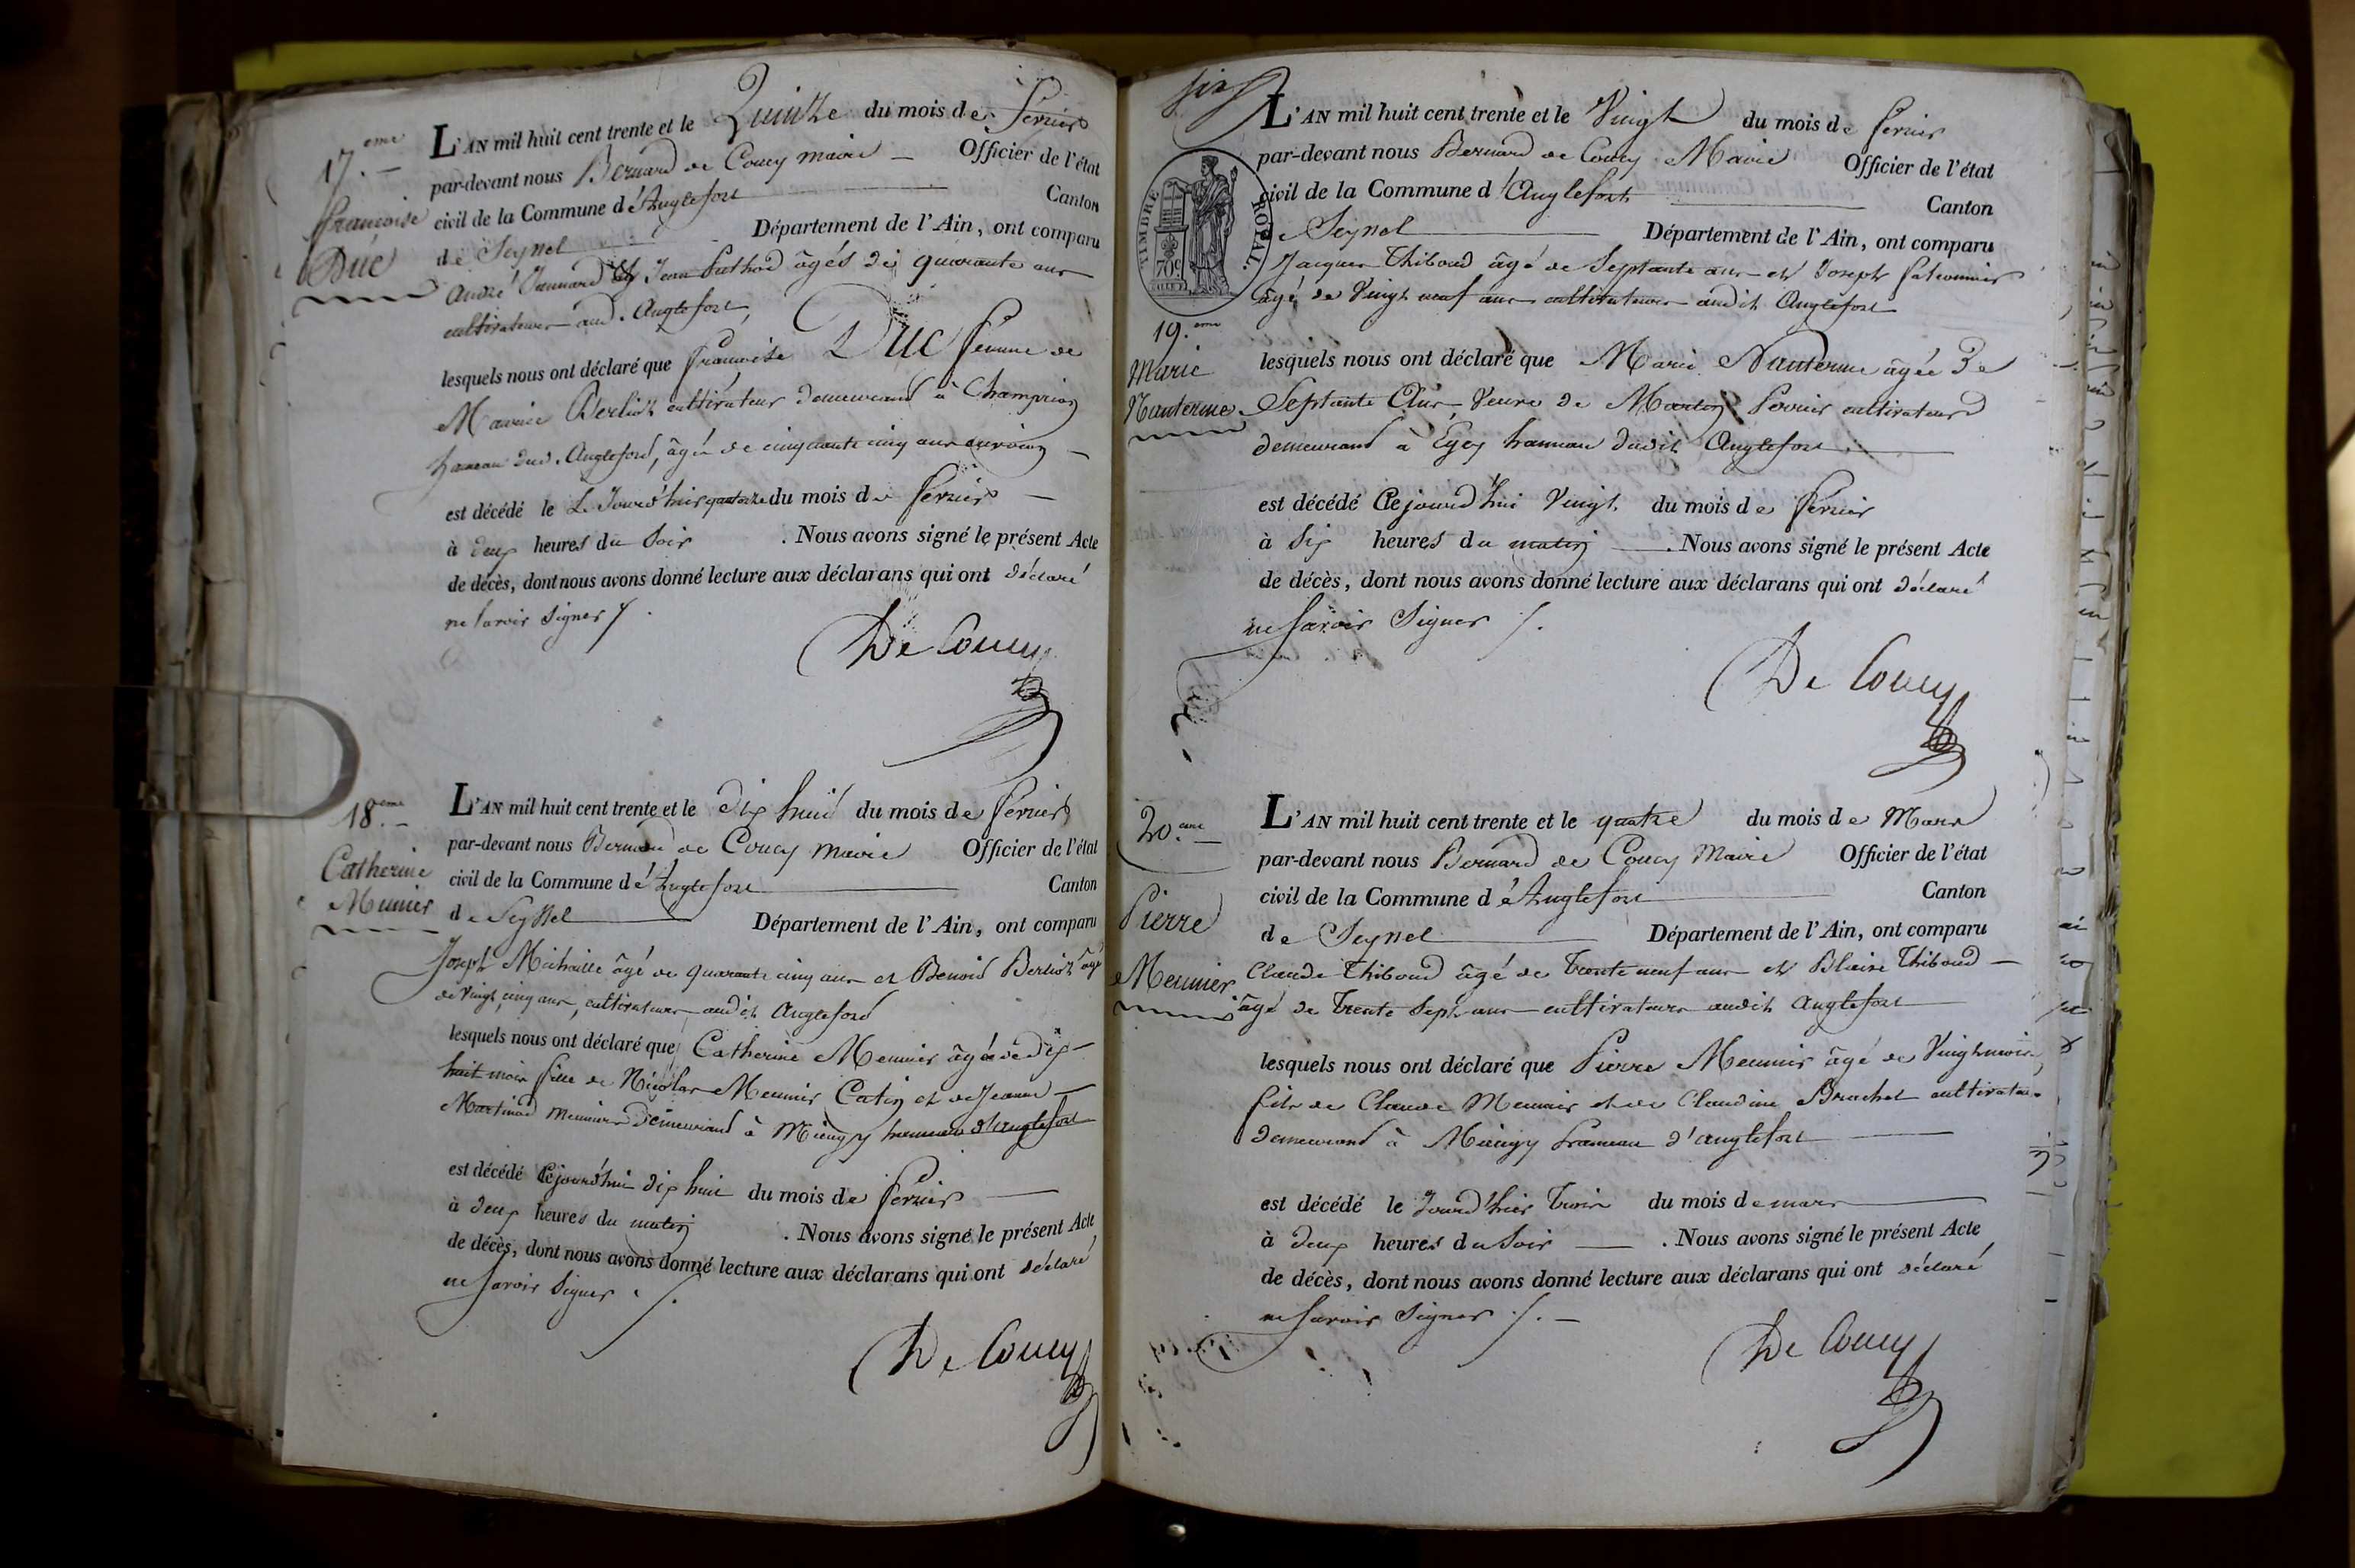 17.eme
françoise
Duc
L'AN mil huit cent trente et le Quinze du mois de fevrier
par-devant nous Bernard de Coucy maire Officier de l'état
civil de la Commune d'Anglefort Canton
de Seyssel Département de l'Ain, ont comparu
André Jannard et Jean Puthod âgés de quarante ans
cultivateurs aud. Anglefort
lesquels nous ont déclaré que françoise Duc femme de
Maurice Berlioz cultivateur demeurant à Champrion
hameau dud. Anglefort, âgée de cinquante cinq ans environ
est décédé le le Jourd'hier quatorze du mois de fevrier
à deux heures du soir . Nous avons signé le présent Acte
de décès, dont nous avons donné lecture aux déclarans qui ont déclaré
ne savoir signer /.
De Coucy
18.eme
Catherine
Meunier
L'AN mil huit cent trente et le dix huit du mois de fevrier
par-devant nous Bernard de Coucy maire Officier de l'état
civil de la Commune d'Anglefort Canton
de Seyssel Département de l'Ain, ont comparu
Joseph Michaille âgé de quarante cinq ans et Benoid Berlioz âgé
de vingt cinq ans, cultivateurs audit Anglefort
lesquels nous ont déclaré que Catherine Meunier âgée de dix
huit mois fille de Nicolas Meunier Catin et de Jeanne
Martinod meuniers demeurant à Mieugy hameau d'Anglefort
est décédé Cejourd'hui dix huit du mois de fevrier
à deux heures du matin . Nous avons signé le présent Acte
de décès, dont nous avons donné lecture aux déclarans qui ont déclaré
ne savoir signer /.
De Coucy
six
TIMBRE ROYAL
70c
L'AN mil huit cent trente et le Vingt du mois de fevrier
par-devant nous Bernard de Coucy Maire Officier de l'état
civil de la Commune d'Anglefort Canton
de Seyssel Département de l'Ain, ont comparu
Jacques Thiboud âgé de Septante ans et Joseph
âgé de Vingt neuf ans cultivateurs audit Anglefort
19.eme
Marie
Nanterme
lesquels nous ont déclaré que Marie Nanterme âgée de
Septante Ans, Veuve de Martin Perrier cultivateur
demeurant à hameau dudit Anglefort
est décédé Cejourd'hui Vingt du mois de fevrier
à six heures du matin . Nous avons signé le présent Acte
de décès, dont nous avons donné lecture aux déclarans qui ont déclaré
ne savoir signer /.
De Coucy
20.eme
Pierre
Meunier
L'AN mil huit cent trente et le quatre du mois de Mars
par-devant nous Bernard de Coucy Maire Officier de l'état
civil de la Commune d'Anglefort Canton
de Seyssel Département de l'Ain, ont comparu
Claude Thiboud âgé de Trente neuf ans et Blaise Thiboud
âgé de Trente Sept ans cultivateurs audit Anglefort
lesquels nous ont déclaré que Pierre Meunier âgé de Vingt mois,
fils de Claude Meunier et de Claudine Brachet cultivateurs
demeurant à Mieugy hameau d'Anglefort
est décédé le Jourd'hier Trois du mois de mars
à deux heures du Soir . Nous avons signé le présent Acte
de décès, dont nous avons donné lecture aux déclarans qui ont déclaré
ne savoir signer /.
De Coucy